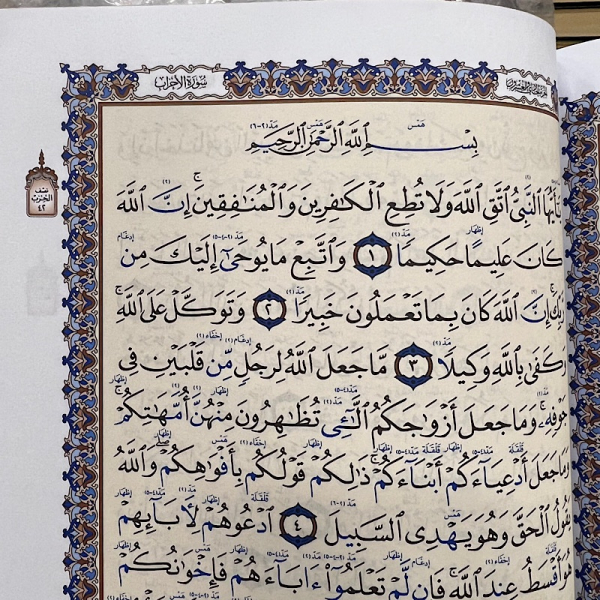 سُورَةُ الأَحْزَابِ
بِسْمِ اللَّهِ الرَّحْمَٰنِ الرَّحِيمِ
يَا أَيُّهَا النَّبِيُّ اتَّقِ اللَّهَ وَلَا تُطِعِ الْكَافِرِينَ وَالْمُنَافِقِينَ إِنَّ اللَّهَ
كَانَ عَلِيمًا حَكِيمًا ١ وَاتَّبِعْ مَا يُوحَىٰ إِلَيْكَ مِن
رَّبِّكَ إِنَّ اللَّهَ كَانَ بِمَا تَعْمَلُونَ خَبِيرًا ٢ وَتَوَكَّلْ عَلَى اللَّهِ
وَكَفَىٰ بِاللَّهِ وَكِيلًا ٣ مَّا جَعَلَ اللَّهُ لِرَجُلٍ مِّن قَلْبَيْنِ فِي
نصف
الحزب
٤٢
جَوْفِهِ وَمَا جَعَلَ أَزْوَاجَكُمُ اللَّائِي تُظَاهِرُونَ مِنْهُنَّ أُمَّهَاتِكُمْ
وَمَا جَعَلَ أَدْعِيَاءَكُمْ أَبْنَاءَكُمْ ذَٰلِكُمْ قَوْلُكُم بِأَفْوَاهِكُمْ وَاللَّهُ
يَقُولُ الْحَقَّ وَهُوَ يَهْدِي السَّبِيلَ ٤ ادْعُوهُمْ لِآبَائِهِمْ
هُوَ أَقْسَطُ عِندَ اللَّهِ فَإِن لَّمْ تَعْلَمُوا آبَاءَهُمْ فَإِخْوَانُكُمْ